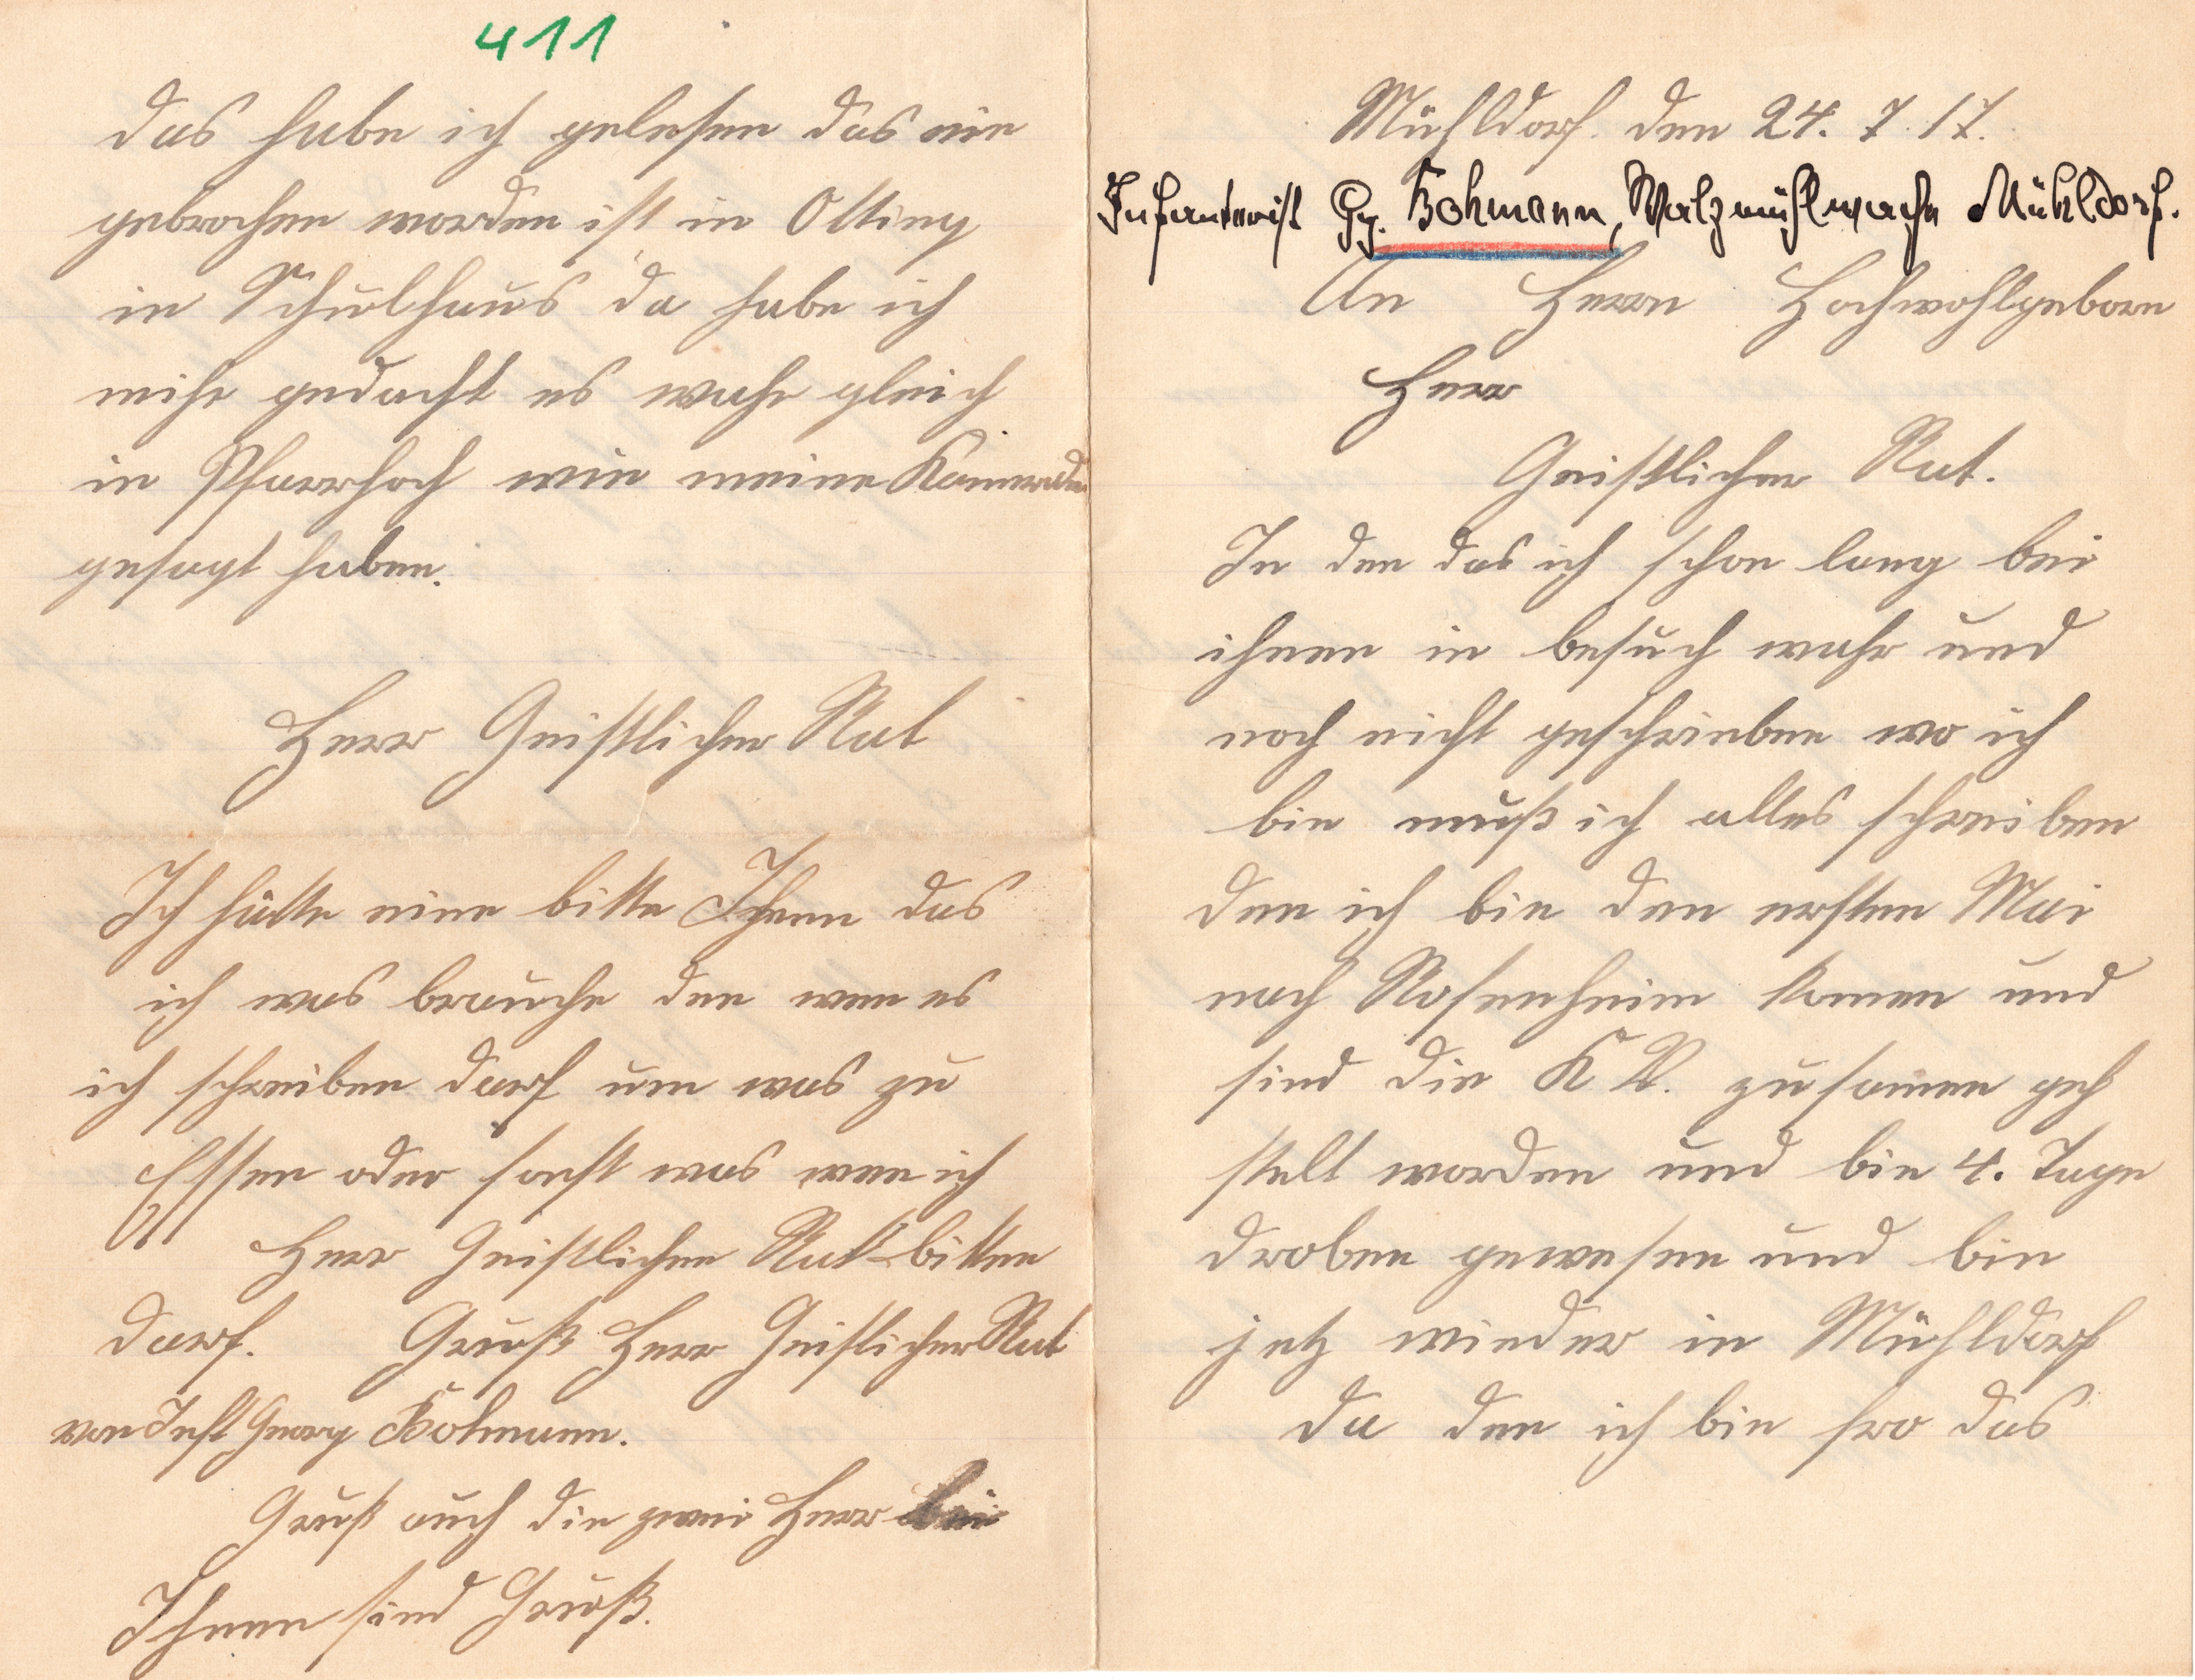 Mühldorf. den 24. 7. 17.
Infanterist Gg. Bohmann, Walzmühlwache Mühldorf.
An Herrn Hochwohlgeborn
Herr
Geistlicher Rat.
In den das ich schon lang bei
ihnen in besuch wahr und
noch nicht geschrieben wo ich
bin muß ich alles schreiben
den ich bin den ersten Mai
nach Rosenheim komen und
sind die K. V. zusamen geh
stelt worden und bin 4. Tage
droben gewesen und bin
jetz wieder in Mühldorf
da den ich bin fro das
411
das habe ich gelesen das ein
gebrochen worden ist in Otting
in Schulhaus da habe ich
mihr gedacht es wahr gleich
in Pfarrhoch wie meine Kameraden
gesagt haben.
Herr Geistlicher Rat
Ich hätte eine bitte Ihnen das
ich was brauche den wen es
ich schreiben darf um was zu
Essen oder sonst was wen ich
Herr Geistlichen Rat bitten
darf. Gruß Herr Geistlicher Rat
von Inft Georg Bohmann.
Gruß auch die zwei Herr bei
Ihnen sind Gruß.